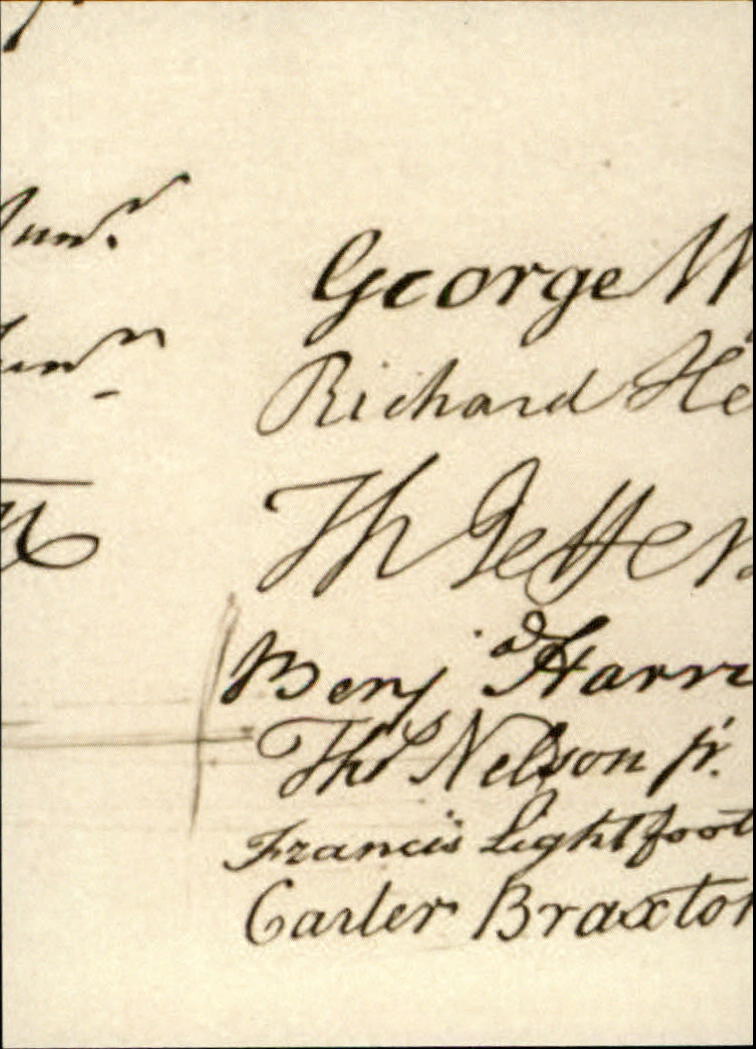 Junr.
George W
Junr
Richard He
Th Jeffers
Benj Harri
Thos Nelson jr.
Francis Lightfoot
Carter Braxton